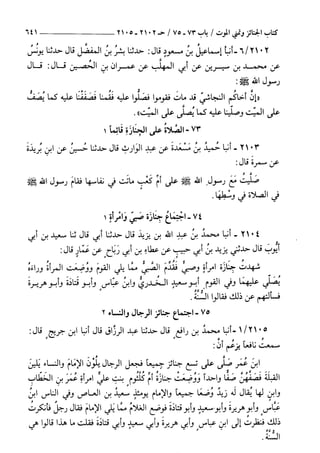 كتاب الجنائز وتمني الموت / باب ٧٣-٧٥ / حـ ٢١٠٢ - ٢١٠٥ ـــــ ٦٤١
٦/٢١٠٢ - أنبأ إسماعيلُ بنُ مسعودٍ قال: حدثنا بشرُ بنُ المفضَّلِ قال حدثنا يونُسُ
عن محمـد بن سيـرين عن أبي المهلَّب عن عمـران بنِ الحُصـين قـال: قـال
رسول الله ﷺ:
«إنَّ أخاكُم النجاشيِّ قد مات فقوموا فصَلُّوا عليه فقُمنا فصَفَفْنا عليه كما يُصَفُّ
على الميِّت وصلَّينا عليه كما يُصلَّى على الميِّت».
٧٣ - الصَّلاةُ على الجنَازَةِ قَائِماً ١
٢١٠٣ - أنبا حُميدُ بنُ مَسْعَدةَ عن عبدِ الوارثِ قال حدثنا حُسينٌ عن ابنِ بُريدَةَ
عن سمرةَ قال:
صَلَّيتُ مَعَ رسولِ الله ﷺ على أُمِّ كَعْبٍ ماتَت في نفاسها فقامَ رسول الله ﷺ
في الصلاة في وسْطِهَا.
٧٤ - اجْتِمَاعُ جَنَازَة صَبِيٍّ وَامْرَأةٍ ١
٢١٠٤ - أنبا محمدُ بنُ عبدِ الله بن يزيدَ قال حدثنا أبي قال ثنا سعيد بن أبي
أيُّوبَ قال حدثني يزيد بنُ أبي حبيبٍ عن عطاءِ بن أبي رَباحٍ عن عمَّارٍ قال:
شهدتُ جَنَازَة امرأةٍ وصبيٍّ فقُدِّمَ الصبيُّ ممَّا يلي القومَ ووُضِعَت المرأةُ وراءَهُ
يُصَلَّي عليهمَا وفي القوم أبـو سعيدٍ الخـدريُّ وابنُ عبَّاس وأبـو قَتادةَ وأبـو هريـرةَ
فسألتُهم عن ذلك فقالوا السُّنَّةُ.
٧٥ - اجتماع جنائز الرجال والنساء ٢
١/٢١٠٥ - أنبا محمدُ بن رافعٍ قال حدثنا عبد الرزاق قال أنبا ابن جريجٍ قال:
سمعتُ نافعاً يزعُم أنَّ:
ابنَ عُمَرَ صلَّى على تسع جنائزَ جميعاً فجعل الرجالَ يلُونَ الإمامَ والنساء يَلينَ
القبلَةَ فصَفَّهُنَّ صفًّا واحداً ووُضِعَتْ جنازةُ أُمِّ كُلثُومٍ بنتِ عليٍّ امرأةِ عُمَرَ بنِ الخطَّابِ
وابنٍ لها يُقال له زيدٌ وُضعَا جميعاً والإمامُ يومئذٍ سعيدُ بن العـاص وفي الناس ابنُ
عبَّاسٍ وأبو هريرةَ وأبو سعيدٍ وأبو قتادةَ فوضِعَ الغلامُ ممَّا يلي الإمامَ فقال رجلٌ فأنكرتُ
ذلك فنظرتُ إلى ابنِ عباسٍ وأبي هريرة وأبي سعيدٍ وأبي قتادةَ فقلت ما هذا قالوا هي
السُّنَّةُ.